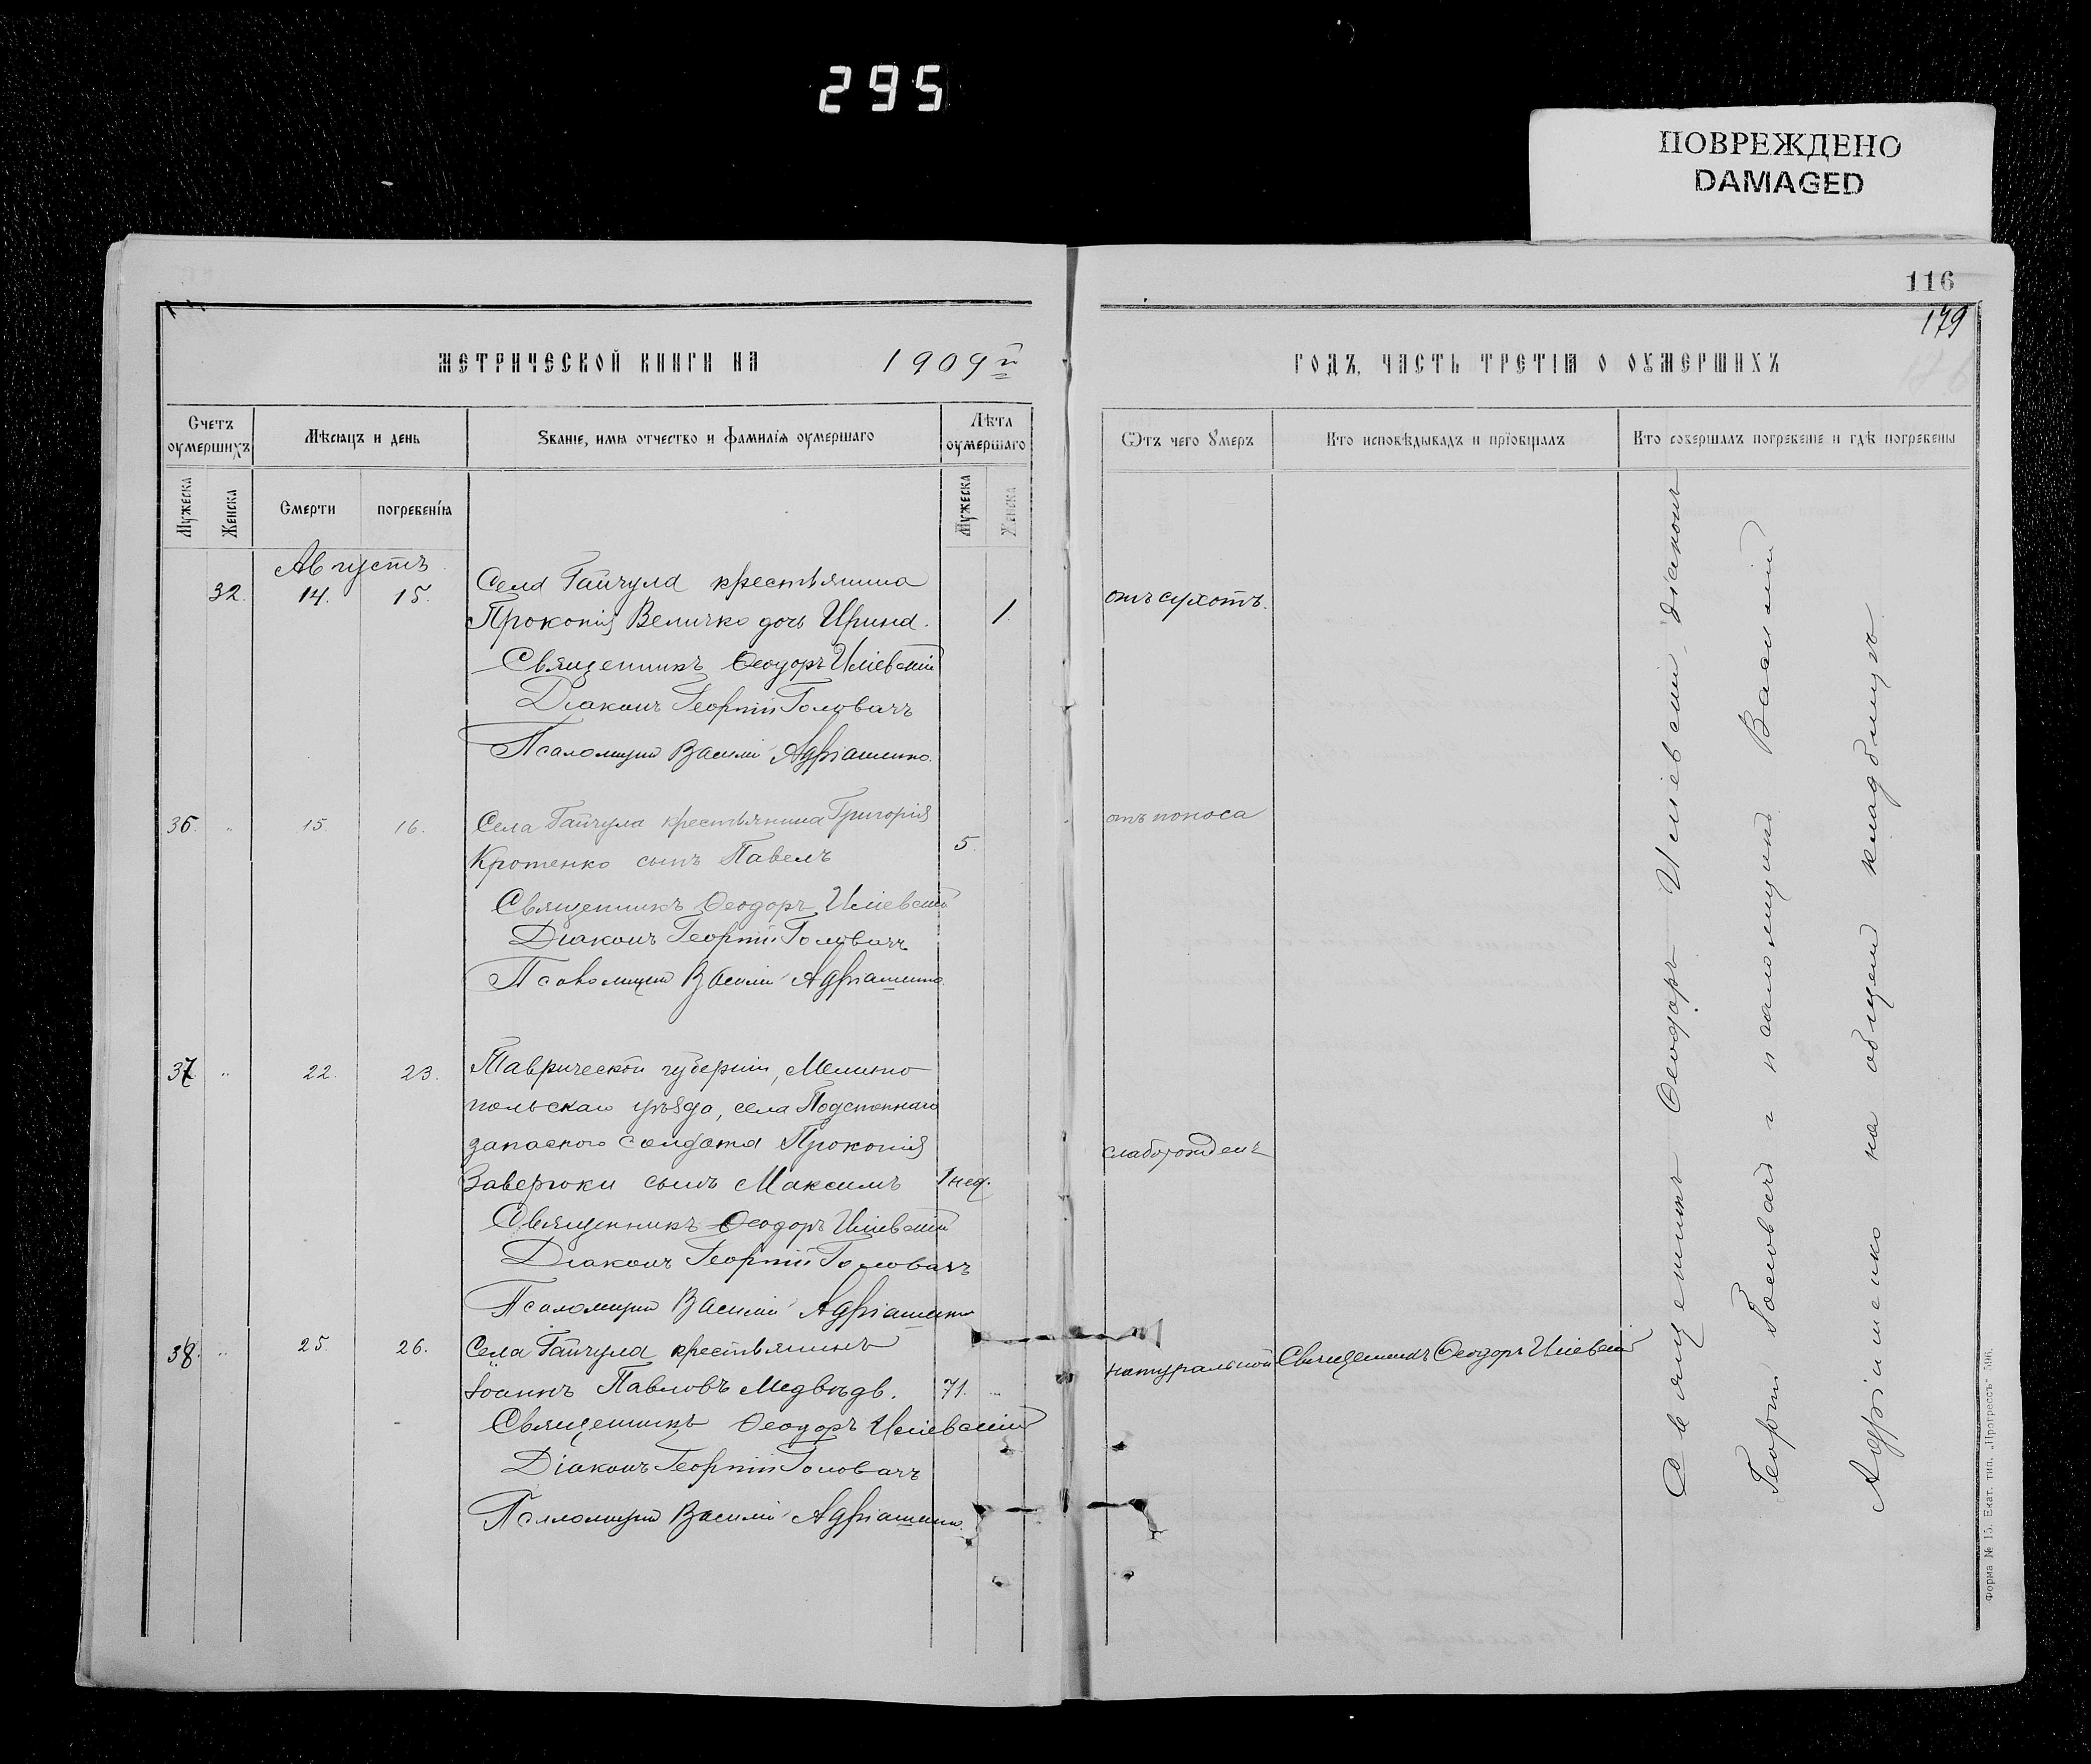 295
ПОВРЕЖДЕНО
DAMAGED
116
179
МЕТРИЧЕСКОЙ КНИГИ НА 1909й ГОДЪ, ЧАСТЬ ТРЕТІЯ О ОУМЕРШИХЪ
Счетъ оумершихъ
Мѣсяцъ и день
Званіе, имя отчество и фамилія оумершаго
Лѣта оумершаго
Ѿтъ чего Умеръ
Кто исповѣдывалъ и пріобщалъ
Кто совершалъ погребеніе и гдѣ погребены
Мужеска
Женска
Смерти
погребенія
Мужеска
Женска
Августъ
32. 14. 15. Села Гайчула крестьянина
Прокопія Величко дочь Ирина. 1. отъ сухотъ.
Священникъ Ѳеодоръ Иліевскій
Діаконъ Георгій Головачъ
Псаломщикъ Василій Адріашенко.
36. " 15. 16. Села Гайчула крестьянина Григорія отъ поноса
Кротенко сынъ Павелъ 5
Священникъ Ѳеодоръ Иліевскій
Діаконъ Георгій Головачъ
Псаломщикъ Василій Адріашенко
37 " 22. 23. Таврической губерніи, Мелито
польскаго уѣзда, села
запасного солдата Прокопія слаборожденъ
Заверюхи сынъ Максимъ 1 нед.
Священникъ Ѳеодоръ Иліевскій
Діаконъ Георгій Головачъ
Псаломщикъ Василій Адріашенко
38. " 25. 26. Села Гайчула крестьянинъ натуральной Священникъ Ѳеодоръ Иліевскій
Іоаннъ Павловъ Медвѣдь. 71. "
Священникъ Ѳеодоръ Иліевскій
Діаконъ Георгій Головачъ
Псаломщикъ Василій Адріашенко.
Священникъ Ѳеодоръ Иліевскій, діаконъ
Георгій Головачъ и псаломщикъ Василій
Адріашенко на общем кладбищѣ
Форма № 15. Екат. тип. „Прогрессъ" 596.